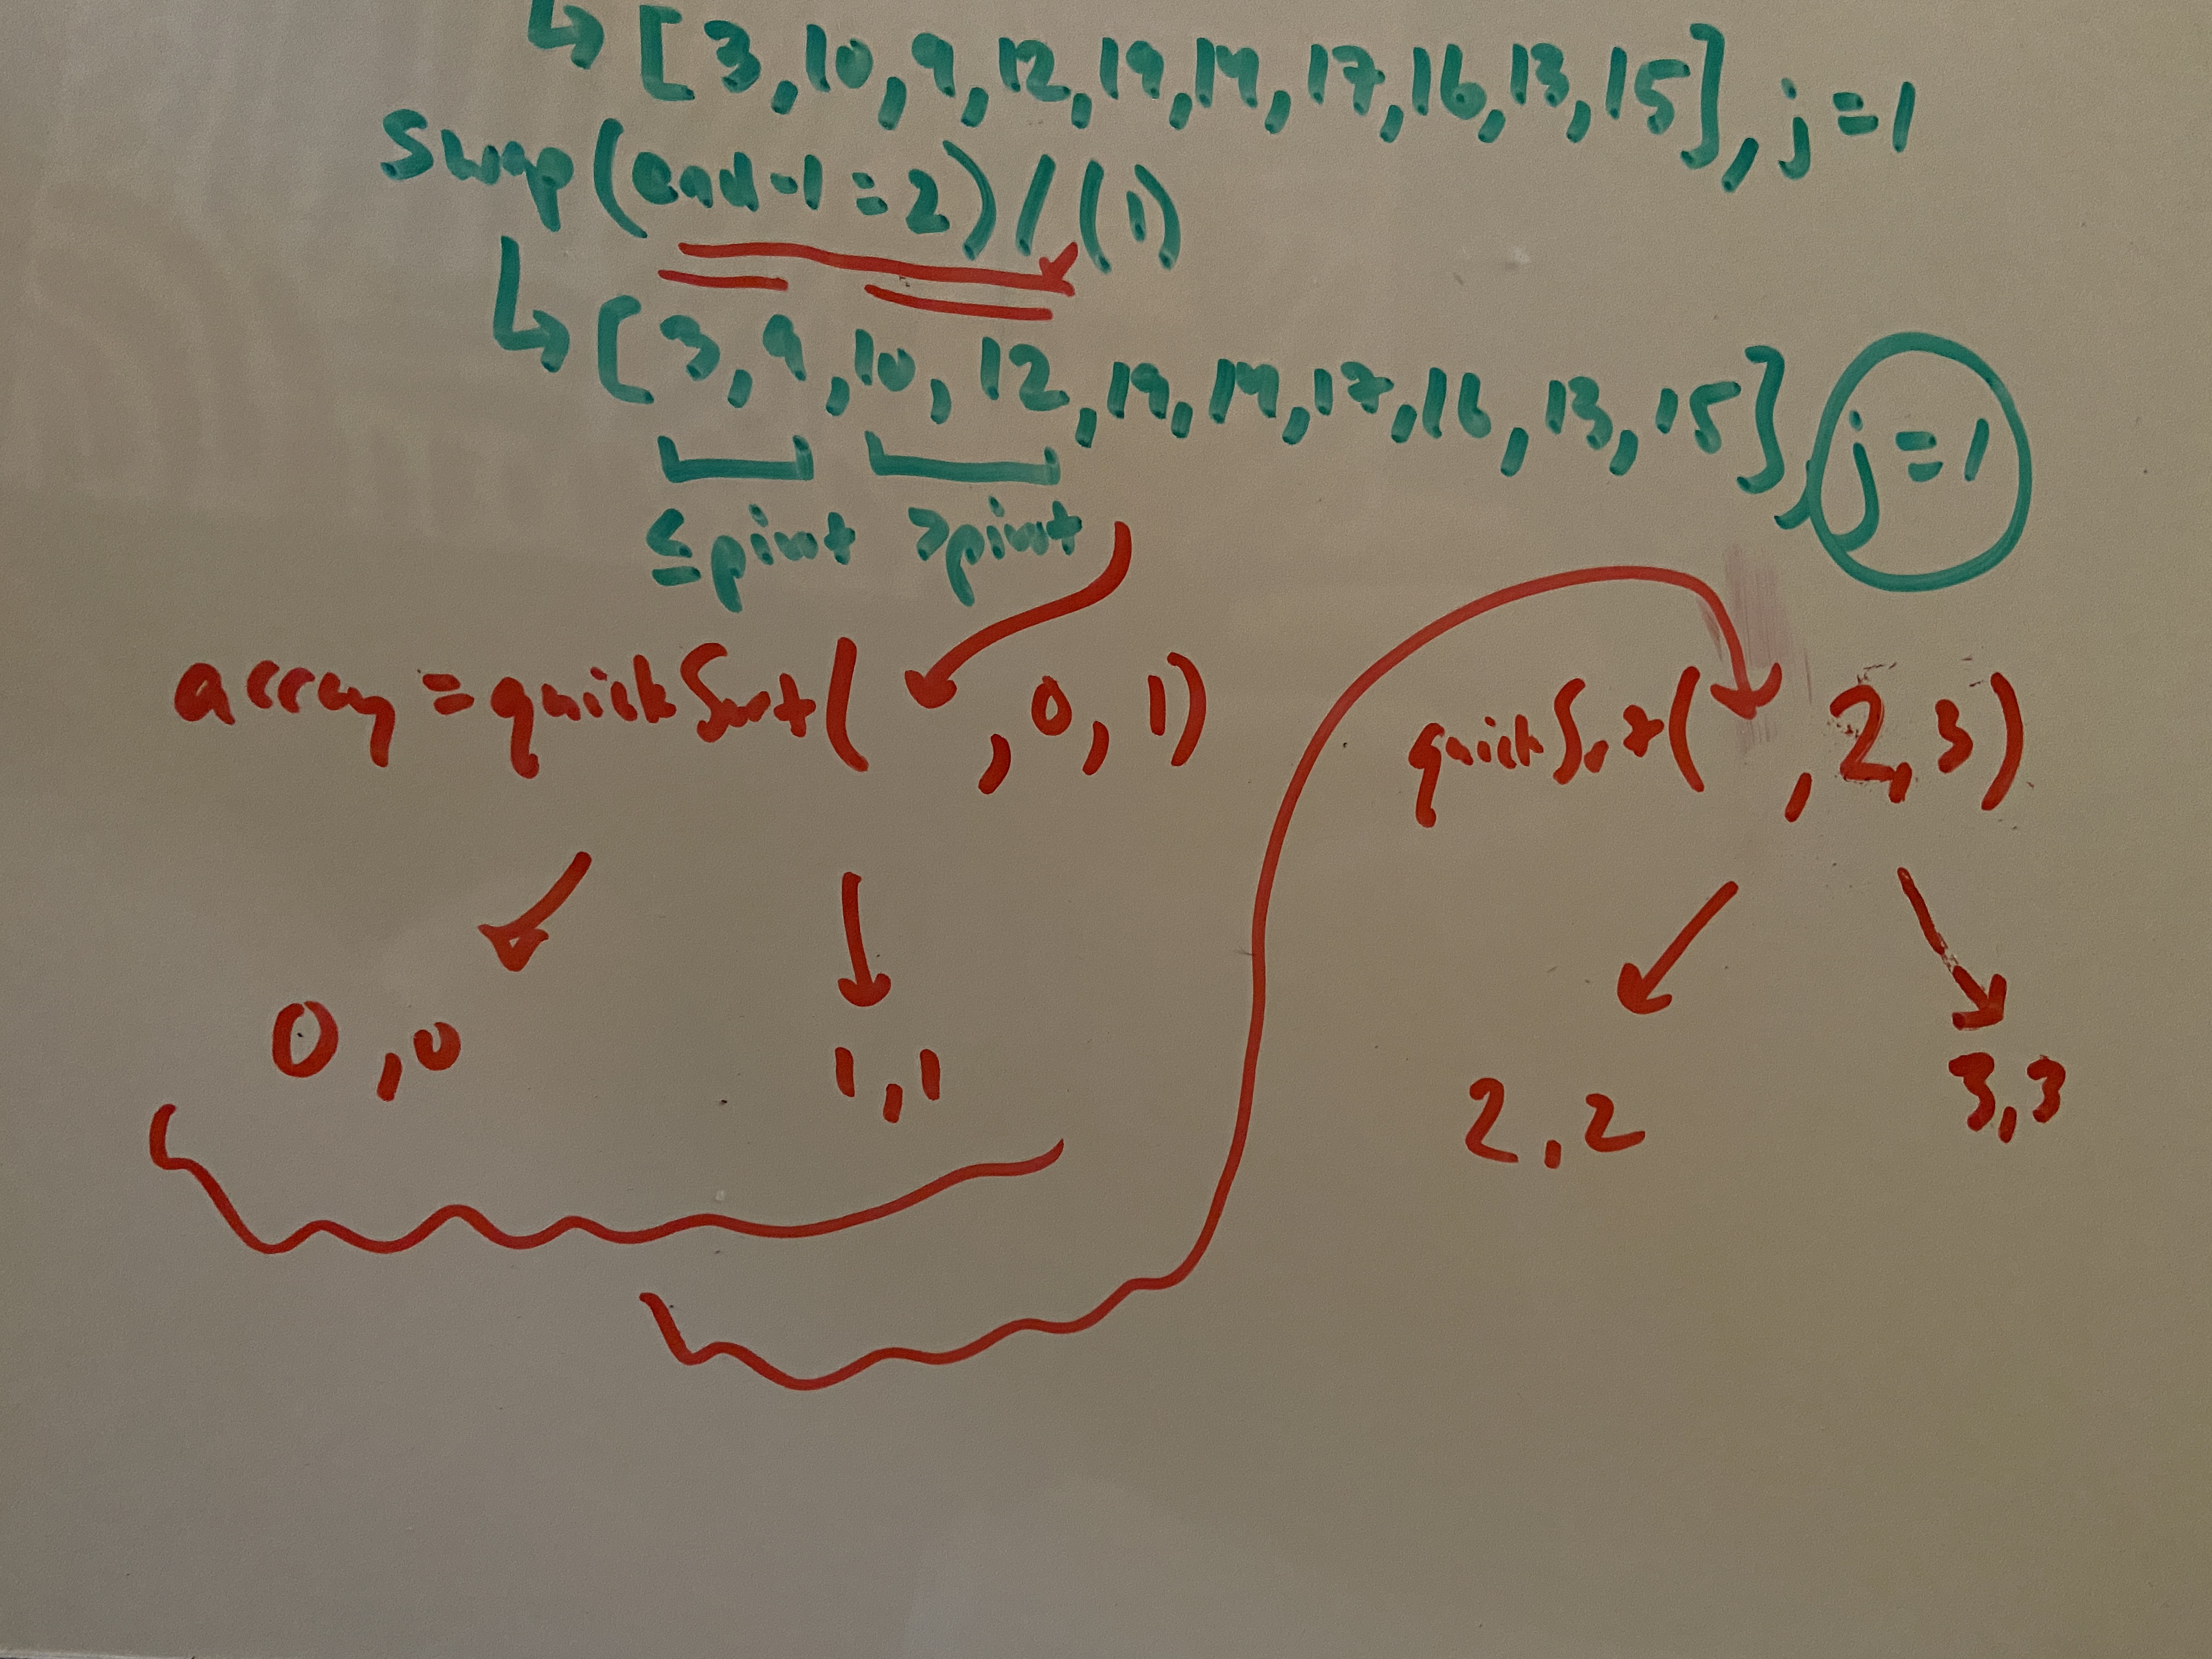 ↳ [3,10,9,12,19,14,17,16,13,15], j=1
swap(end-1=2)/(1)
↳ [3,9,10,12,19,14,17,16,13,15], j=1
≤pivot >pivot
array=quickSort( ,0,1) quickSort( ,2,3)
0,0 1,1 2,2 3,3